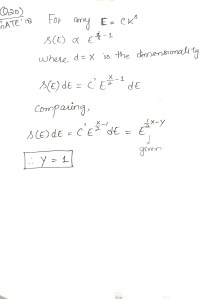 Q.20)
GATE'18
For any E = Ck^s
S(E) ∝ E^{d/s - 1}
where d = x is the dimensionality
S(E) dE = C' E^{x/2 - 1} dE
comparing,
S(E) dE = C' E^{x/2 - 1} dE = E^{1/2 x - y}
↓
given
∴ Y = 1